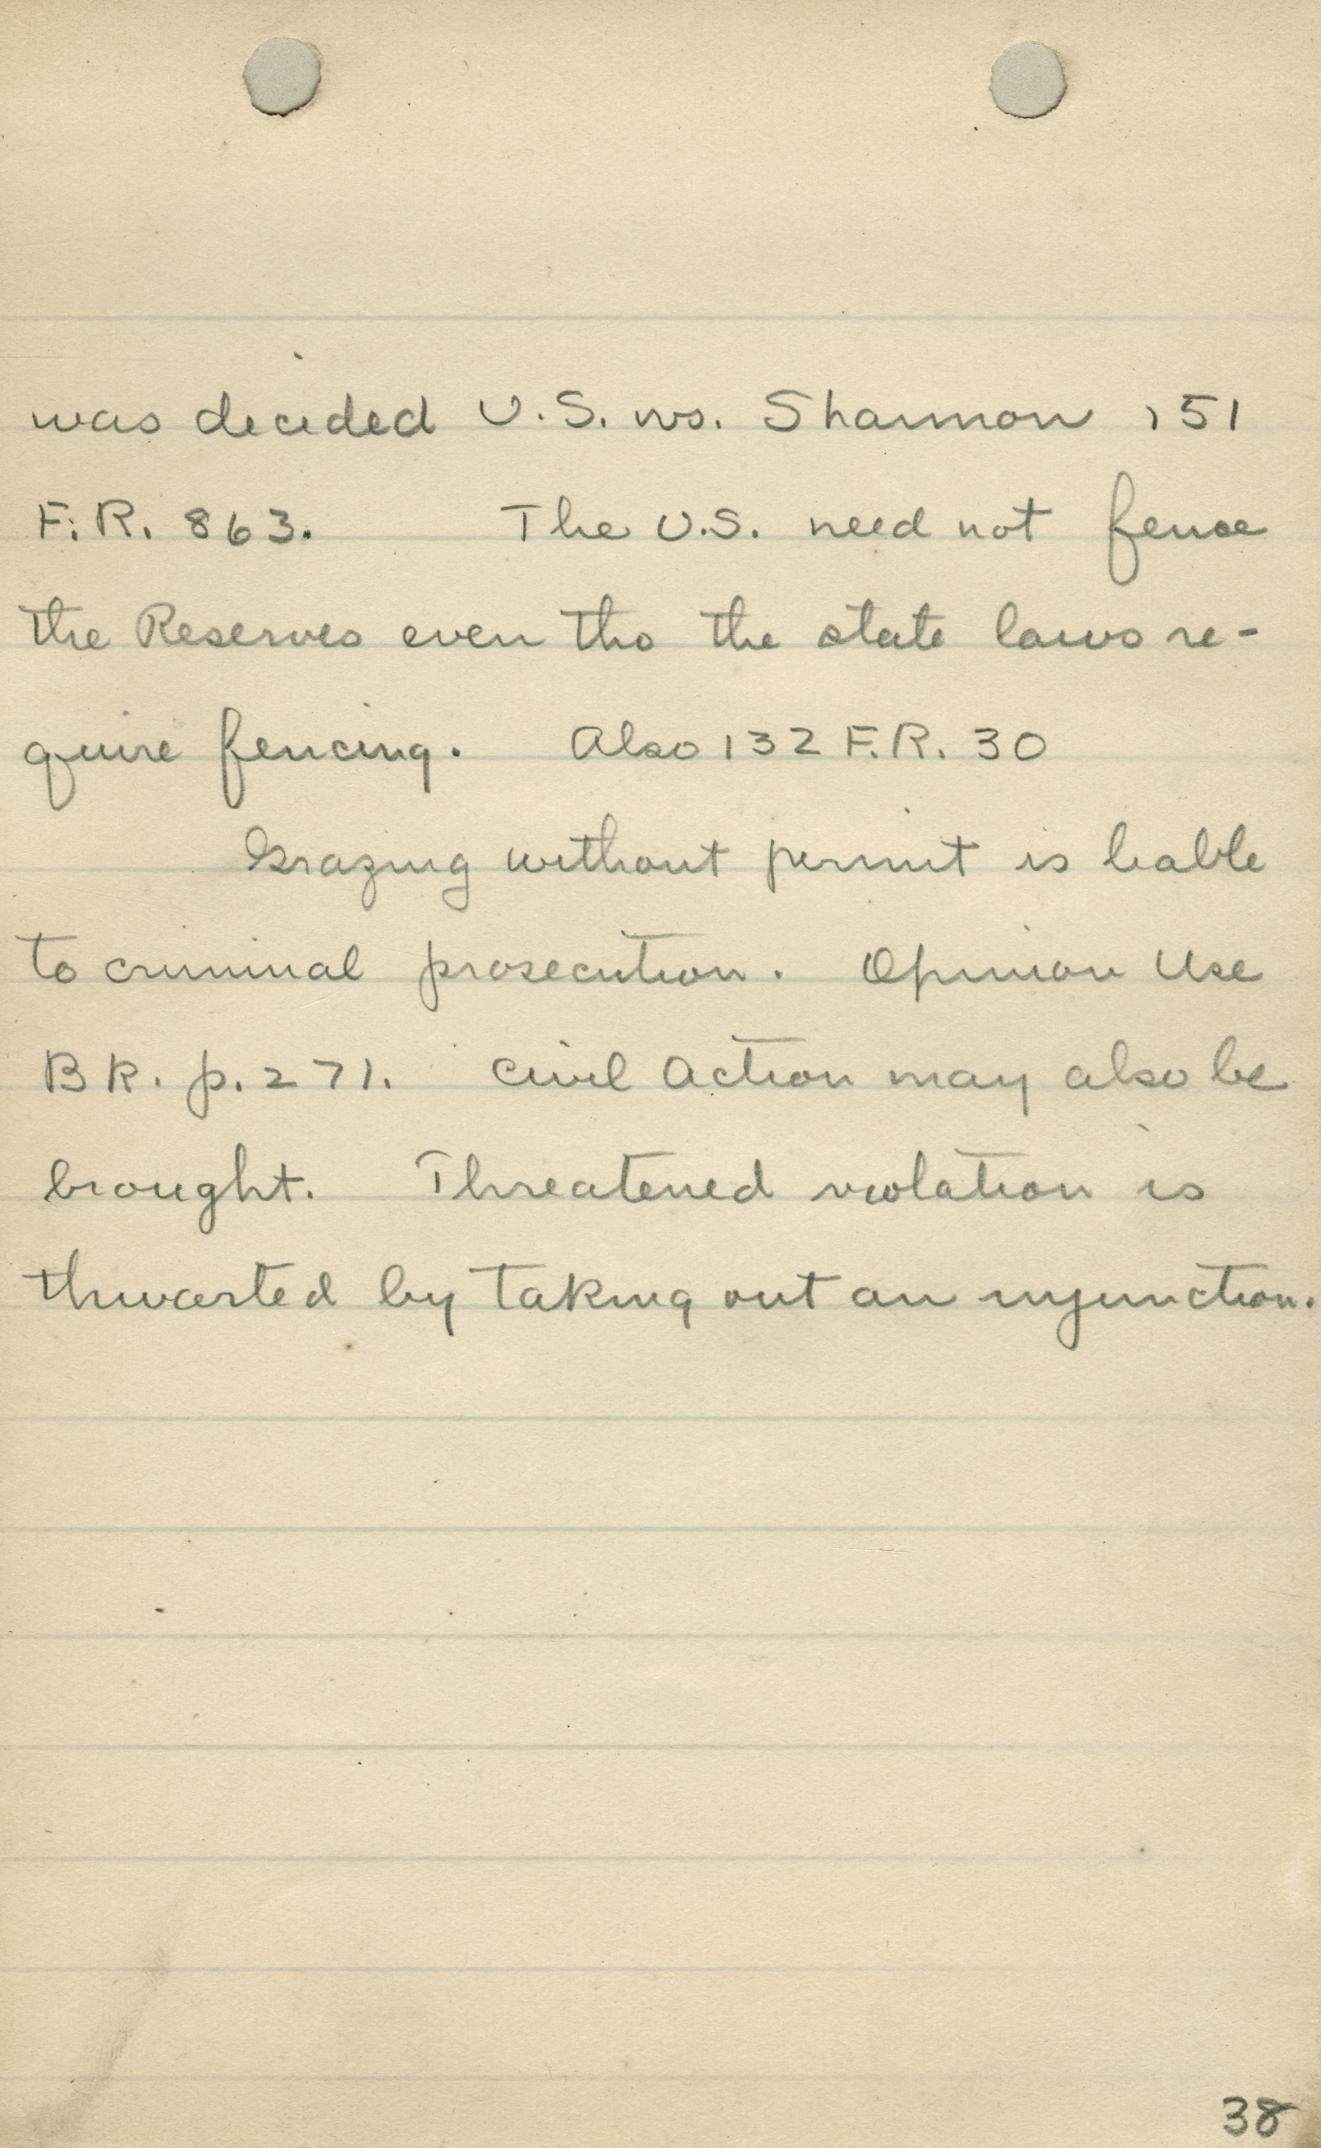 was decided U.S. vs. Shannon 151
F.R. 863. The U.S. need not fence
the Reserves even tho the state laws re-
quire fencing. Also 132 F.R. 30
Grazing without permit is liable
to criminal prosecution. Opinion Use
BK. p. 271. Civil Action may also be
brought. Threatened violation is
thwarted by taking out an injunction.
38